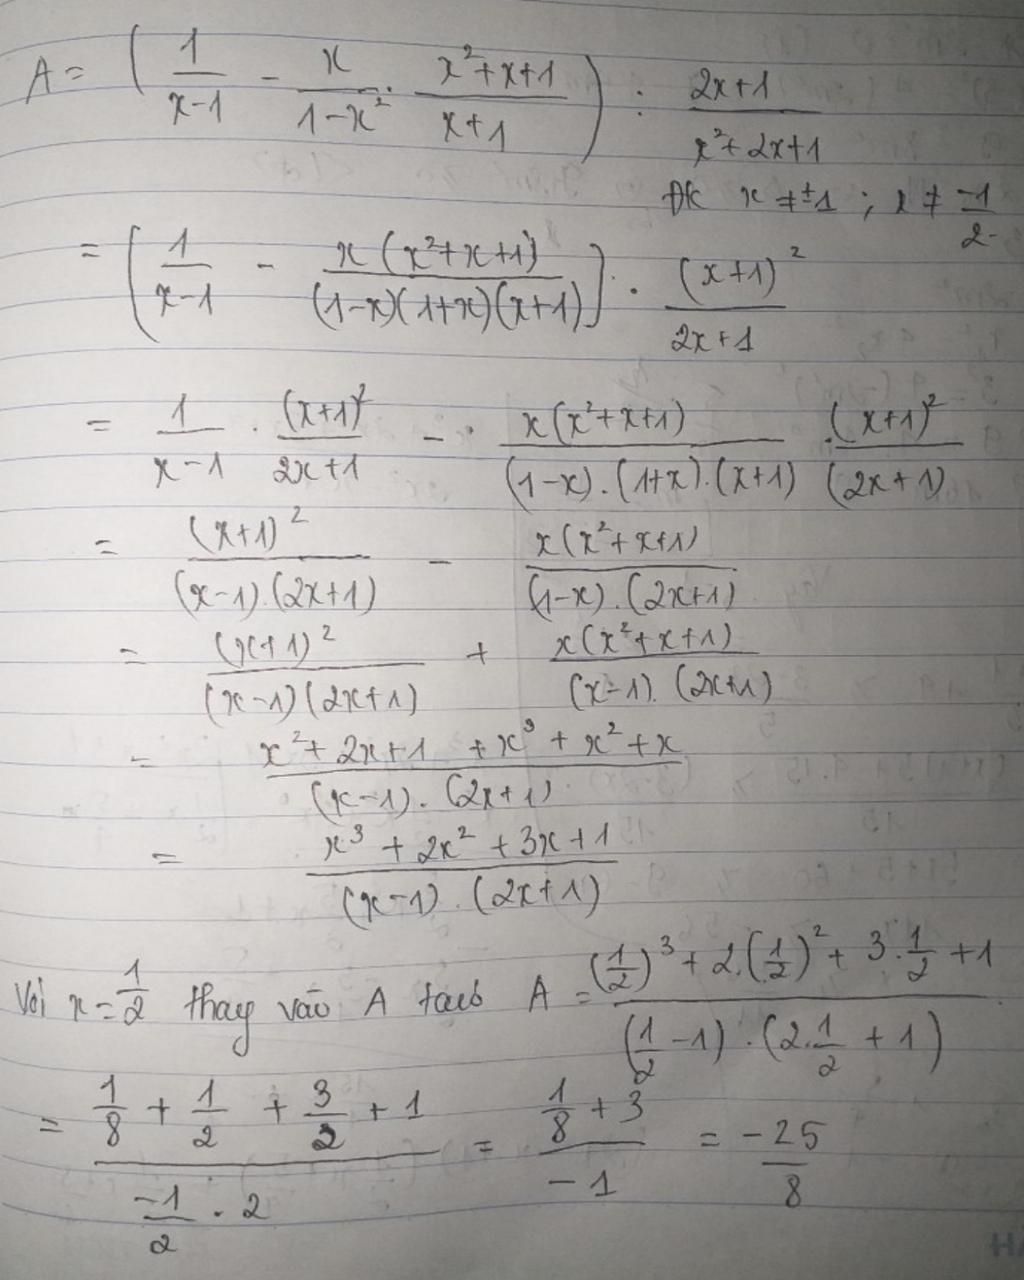 A = ( 1/(x-1) - x/(1-x²) . (x²+x+1)/(x+1) ) : (2x+1)/(x²+2x+1)
ĐK x ≠ ±1 ; x ≠ -1/2
= [ 1/(x-1) - x(x²+x+1)/((1-x)(1+x)(x+1)) ] . (x+1)²/(2x+1)
= 1/(x-1) . (x+1)²/(2x+1) - . x(x²+x+1)/((1-x).(1+x).(x+1)) . (x+1)²/(2x+1)
= (x+1)²/((x-1).(2x+1)) - x(x²+x+1)/((1-x).(2x+1))
= (x+1)²/((x-1)(2x+1)) + x(x²+x+1)/((x-1).(2x+1))
= (x²+2x+1+x³+x²+x)/((x-1).(2x+1))
= (x³+2x²+3x+1)/((x-1).(2x+1))
Với x = 1/2 thay vào A A = ((1/2)³+2.(1/2)²+3.1/2+1)/((1/2-1).(2.1/2+1))
= (1/8+1/2+3/2+1)/(-1/2.2) = (1/8+3)/(-1) = -25/8